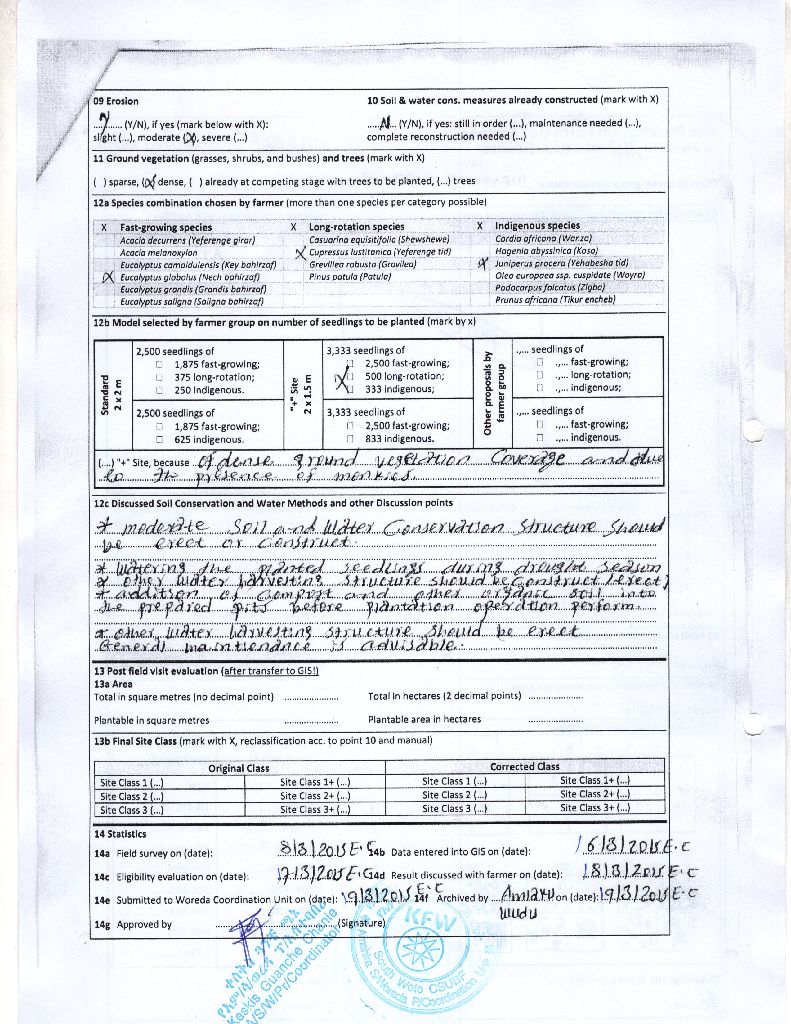 09 Erosion
10 Soil & water cons. measures already constructed (mark with X)
..Y...... (Y/N), if yes (mark below with X):
slight (...), moderate (X), severe (...)
....N... (Y/N), if yes: still in order (...), maintenance needed (...),
complete reconstruction needed (...)
11 Ground vegetation (grasses, shrubs, and bushes) and trees (mark with X)
( ) sparse, (X) dense, ( ) already at competing stage with trees to be planted, (...) trees
12a Species combination chosen by farmer (more than one species per category possible)
X Fast-growing species
Acacia decurrens (Yeferenge girar)
Acacia melanoxylon
Eucalyptus camaldulensis (Key bahirzaf)
X Eucalyptus globolus (Nech bahirzaf)
Eucalyptus grandis (Grandis bahirzaf)
Eucalyptus saligna (Saligna bahirzaf)
X Long-rotation species
Casuarina equisitifolia (Shewshewe)
X Cupressus lustitanica (Yeferenge tid)
Grevillea robusta (Gravilea)
Pinus patula (Patula)
X Indigenous species
Cordia africana (Wanza)
Hagenia abyssinica (Koso)
X Juniperus procera (Yehabesha tid)
Olea europaea ssp. cuspidate (Woyra)
Podocarpus falcatus (Zigba)
Prunus africana (Tikur encheb)
12b Model selected by farmer group on number of seedlings to be planted (mark by x)
Standard
2 x 2 m
2,500 seedlings of
☐ 1,875 fast-growing;
☐ 375 long-rotation;
☐ 250 indigenous.
2,500 seedlings of
☐ 1,875 fast-growing;
☐ 625 indigenous.
"+" Site
2 x 1.5 m
3,333 seedlings of
☐ 2,500 fast-growing;
X 500 long-rotation;
☐ 333 indigenous;
3,333 seedlings of
☐ 2,500 fast-growing;
☐ 833 indigenous.
Other proposals by
farmer group
.,... seedlings of
☐ .,... fast-growing;
☐ .,... long-rotation;
☐ .,... indigenous;
.,... seedlings of
☐ .,... fast-growing;
☐ .,... indigenous.
(...) "+" Site, because of dense ground vegetation Coverage and due
to the presence of monkies.
12c Discussed Soil Conservation and Water Methods and other Discussion points
* moderate Soil and Water Conservation Structure Should
be erect or construct.
* Watering the planted seedlings during drought season
* other water harvesting structure should be construct (erect)
* addition of compost and other organic soil into
the prepared pits before plantation operation perform.
* other water harvesting structure should be erect
General maintenance is advisable.
13 Post field visit evaluation (after transfer to GIS!)
13a Area
Total in square metres (no decimal point) ....................
Total in hectares (2 decimal points) ....................
Plantable in square metres ....................
Plantable area in hectares ....................
13b Final Site Class (mark with X, reclassification acc. to point 10 and manual)
Original Class
Corrected Class
Site Class 1 (...) Site Class 1+ (...) Site Class 1 (...) Site Class 1+ (...)
Site Class 2 (...) Site Class 2+ (...) Site Class 2 (...) Site Class 2+ (...)
Site Class 3 (...) Site Class 3+ (...) Site Class 3 (...) Site Class 3+ (...)
14 Statistics
14a Field survey on (date): 8/3/2015 E.C
14b Data entered into GIS on (date): 16/3/2015 E.C
14c Eligibility evaluation on (date): 17/3/2015 E.C
14d Result discussed with farmer on (date): 18/3/2015 E.C
14e Submitted to Woreda Coordination Unit on (date): 19/3/2015 E.C
14f Archived by .... on (date): 19/3/2015 E.C
Wudu
14g Approved by .................... (Signature)
Keskis Guanche Chanie
A/S/W/Pr/Coordinator
KFW
South Wolo CSUBF